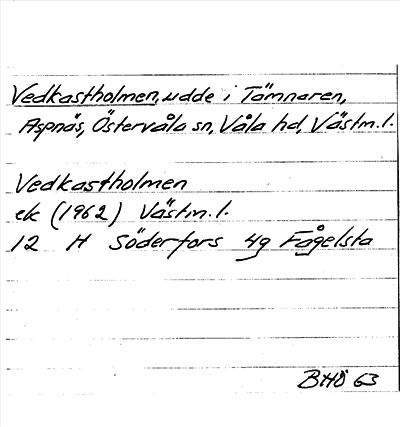 Vedkastholmen, udde i Tämnaren,
Aspnäs, Östervåla sn, Våla hd, Västm. l.
Vedkastholmen
ek (1962) Västm. l.
12 H Söderfors 4g Fågelsta
BHÖ 63